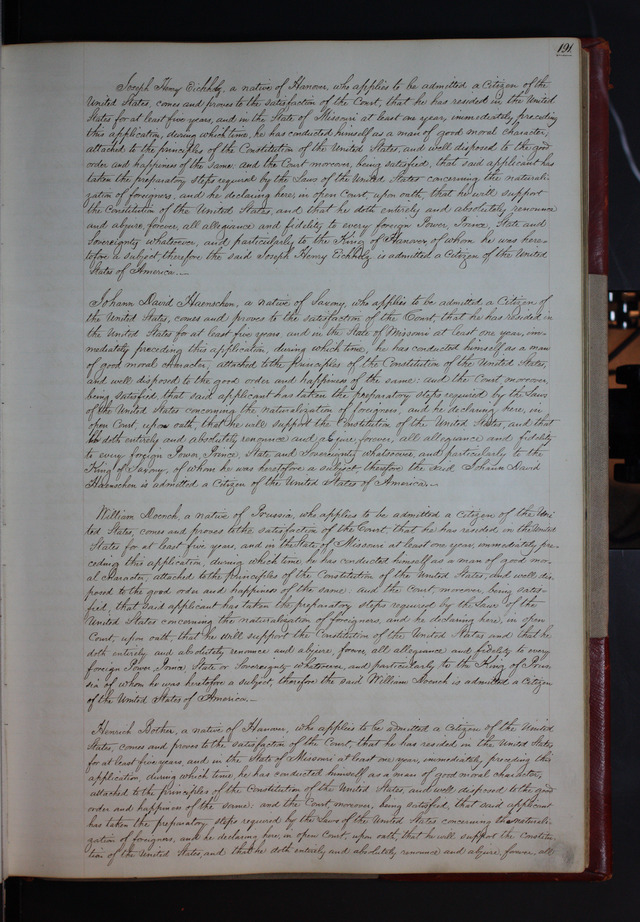 191
Joseph Henry Eickholz, a native of Hanover, who applies to be admitted a Citizen of the
United States, comes and proves to the satisfaction of the Court, that he has resided in the United
States for at least five years, and in the State of Missouri at least one year, immediately, preceding
this application, during which time, he has conducted himself as a man of good moral character,
attached to the principles of the Constitution of the United States, and well disposed to the good
order and happiness of the same. and the Court moreover, being satisfied, that said applicant has
taken the preparatory steps required by the Laws of the United States concerning the naturali-
zation of foreigners, and he declaring here in open Court, upon oath, that he will support
the Constitution of the United States, and that he doth entirely and absolutely renounce
and abjure, forever, all allegiance and fidelity to every foreign Power, Prince, State and
Sovereignty whatsoever, and particularly to the King of Hanover of whom he was here-
tofore a subject, therefore the said Joseph Henry Eickholz is admitted a Citizen of the United
States of America.
Johann David Haenschen, a native of Saxony, who applies to be admitted a Citizen of
the United States, comes and proves to the satisfaction of the Court, that he has resided in
the United States for at least five years and in the State of Missouri at least one year, im-
mediately preceding this application, during which time, he has conducted himself as a man
of good moral character, attached to the principles of the Constitution of the United States,
and well disposed to the good order and happiness of the same: and the Court moreover,
being satisfied, that said applicant has taken the preparatory steps required by the Laws
of the United States concerning the naturalization of foreigners, and he declaring here, in
open Court, upon oath, that he will support the Constitution of the United States, and that
he doth entirely and absolutely renounce and abjure, forever, all allegiance and fidelity
to every foreign Power, Prince, State and Sovereignty whatsoever, and particularly to the
King of Saxony, of whom he was heretofore a subject, therefore the said Johann David
Haenschen is admitted a Citizen of the United States of America.
William, a native of Prussia, who applies to be admitted a Citizen of the Uni-
ted States, comes and proves to the satisfaction of the Court, that he has resided in the United
States for at least five years, and in the State of Missouri at least one year, immediately pre-
ceding this application, during which time, he has conducted himself as a man of good mor-
al character, attached to the principles of the Constitution of the United States, and well dis-
posed to the good order and happiness of the same: and the Court, moreover, being satis-
fied, that said applicant has taken the preparatory steps required by the Laws of the
United States concerning the naturalization of foreigners, and he declaring here, in open
Court, upon oath, that he will support the Constitution of the United States and that he
doth entirely and absolutely renounce and abjure, forever, all allegiance and fidelity to every
foreign Power, Prince, State or Sovereignty whatsoever, and particularly to the King of Prus-
sia, of whom he was heretofore a subject, therefore the said William is admitted a Citizen
of the United States of America.
Heinrich Bother, a native of Hanover, who applies to be admitted a Citizen of the United
States, comes and proves to the satisfaction of the Court, that he has resided in the United States
for at least five years, and in the State of Missouri at least one year, immediately preceding this
application, during which time, he has conducted himself as a man of good moral character,
attached to the principles of the Constitution of the United States, and well disposed to the good
order and happiness of the same: and the Court moreover, being satisfied, that said applicant
has taken the preparatory steps required by the Laws of the United States concerning the naturali-
zation of foreigners, and he declaring here, in open Court, upon oath, that he will support the Constitu-
tion of the United States, and that he doth entirely and absolutely renounce and abjure, forever, all